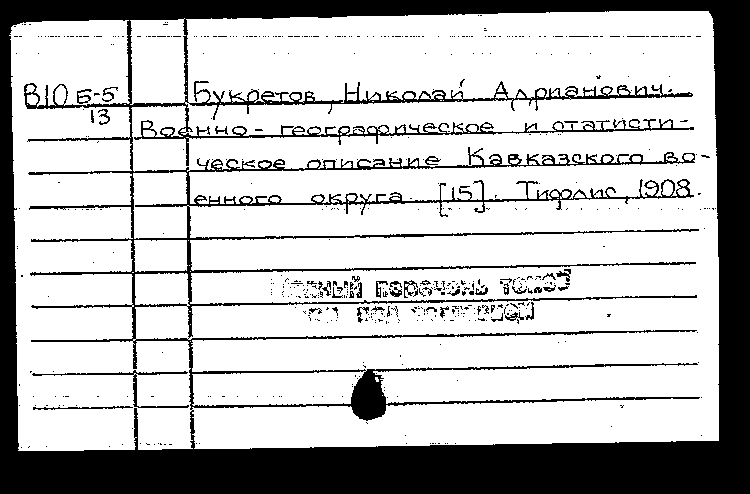 В10 Б-5/13 Букретов, Николай Адрианович.
Военно-географическое и статисти-
ческое описание Кавказского во-
енного округа [15]. Тифлис, 1908.
перечень томов
под